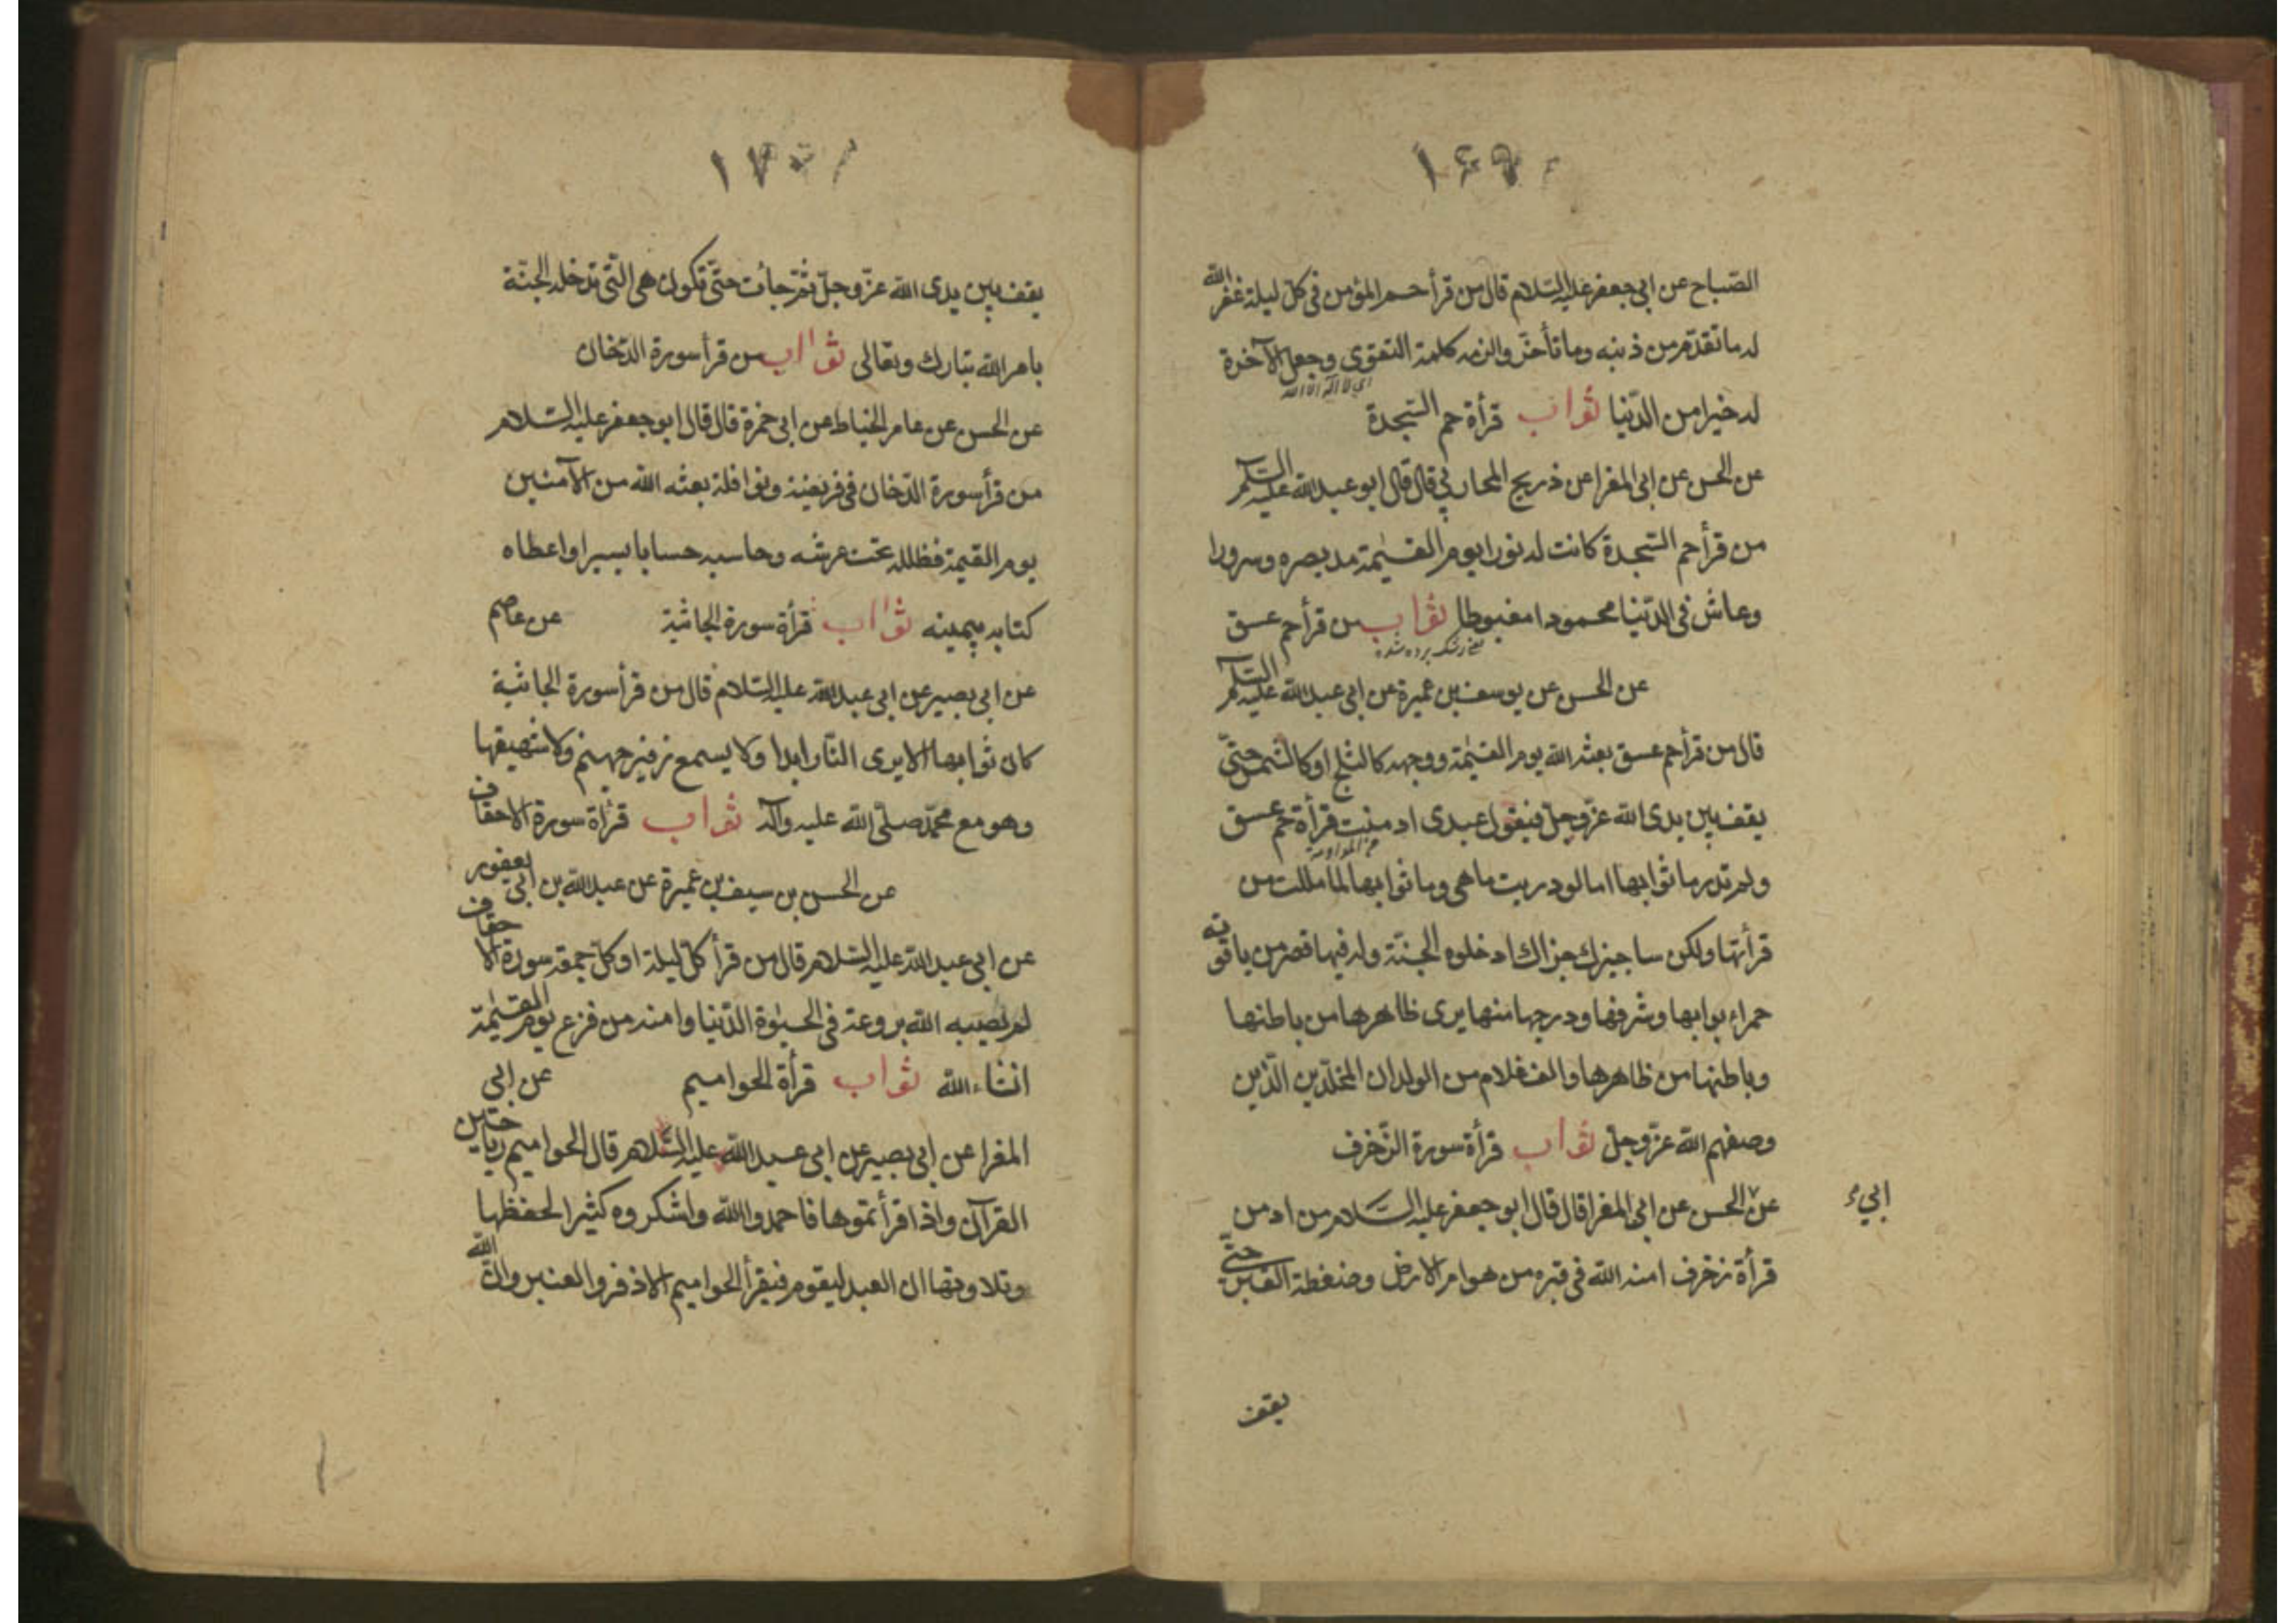 ۱۶۹
الصباح عن ابی جعفر علیه السلام قال من قرأ حم المؤمن فی کل لیلة غفر الله
له ما تقدم من ذنبه وما تأخر والزمه کلمة التقوی وجعل الآخرة
ای لا اله الا الله
له خیرا من الدنیا ثواب قرأة حم السجدة
عن الحسن عن ابی المغرا عن ذریح المحاربی قال قال ابو عبد الله علیه السلام
من قرأ حم السجدة کانت له نورا یوم القیٰمة مد بصره وسرورا
وعاش فی الدنیا محمودا مغبوطا ثواب من قرأ حم عسق
عن الحسن عن یوسف بن عمیرة عن ابی عبد الله علیه السلام
قال من قرأ حم عسق بعثه الله یوم القیٰمة ووجهه کالثلج او کالشمس حتی
یقف بین یدی الله عز وجل فیقول عبدی ادمنت قرأة حم عسق
ولم تدر ما ثوابها اما لو دریت ما هی وما ثوابها لما مللت من
قرأتها ولکن ساجیزك جزاك ادخلوه الجنة وله فیها قصر من یاقوته
حمراء بوابها وشرفها ودرجها منها یری ظاهرها من باطنها
وباطنها من ظاهرها والف غلام من الولدان المخلدین الذین
وصفهم الله عز وجل ثواب قرأة سورة الزخرف
عن الحسن عن ابی المغرا قال قال ابو جعفر علیه السلام من ادمن
ابی
قرأة زخرف امنه الله فی قبره من هوام الارض وضغطة القبر حتی
یقف
۱۷۰
یقف بین یدی الله عز وجل ثم جائت حتی تکون هی التی تدخله الجنة
بامر الله تبارك وتعالی ثواب من قرأ سورة الدخان
عن الحسن عن عامر الخیاط عن ابی حمزة قال قال ابو جعفر علیه السلام
من قرأ سورة الدخان فی فریضة ونوافلة بعثه الله من الآمنین
یوم القیمة فظلله تحت عرشه وحاسبه حسابا یسیرا واعطاه
کتابه بیمینه ثواب قرأة سورة الجاثیة عن عاصم
عن ابی بصیر عن ابی عبد الله علیه السلام قال من قرأ سورة الجاثیة
کان ثوابها الا یری النار ابدا ولا یسمع زفیر جهنم ولا شهیقها
وهو مع محمد صلی الله علیه وآله ثواب قرأة سورة الاحقاف
عن الحسن بن سیف بن عمیرة عن عبد الله بن ابی یعفور
عن ابی عبد الله علیه السلام قال من قرأ کل لیلة او کل جمعة سورة الاحقاف
لم یصیبه الله بروعة فی الحیوٰة الدنیا وامنه من فزع یوم القیٰمة
انشاء الله ثواب قرأة الحوامیم عن ابی
المغرا عن ابی بصیر عن ابی عبد الله علیه السلام قال الحوامیم ریاحین
القرآن واذا قرأتموها فاحمدوا الله واشکروه کثیرا لحفظها
وتلاوتها ان العبد لیقوم فیقرأ الحوامیم الاذفر والعنبر وان الله